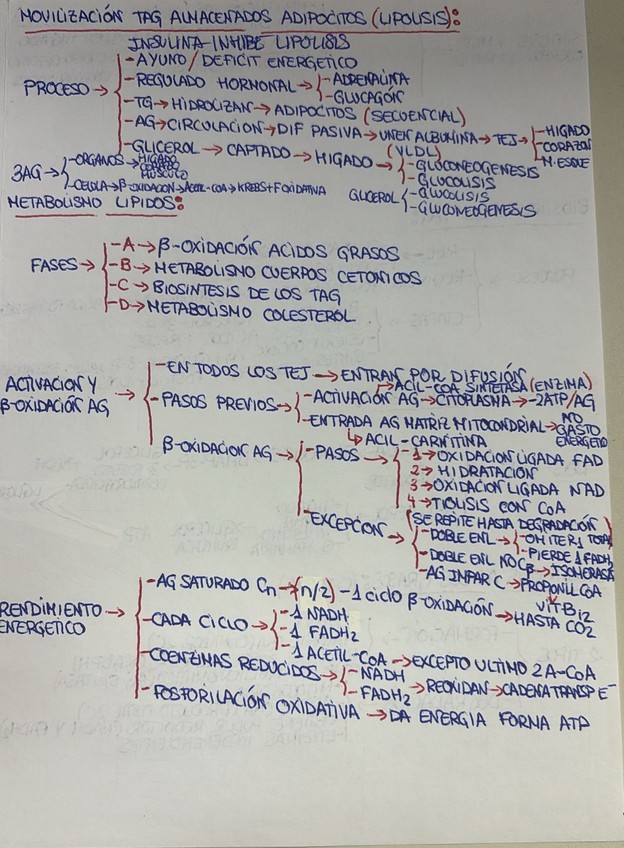 MOVILIZACIÓN TAG ALMACENADOS ADIPOCITOS (LIPOLISIS):
INSULINA-INHIBE LIPOLISIS
PROCESO →
-AYUNO/DEFICIT ENERGETICO
-REGULADO HORMONAL →
-ADRENALINA
-GLUCAGÓN
-TG→HIDROLIZAN→ADIPOCITOS (SECUENCIAL)
-AG→CIRCULACION→DIF PASIVA→UNEN ALBUMINA→TEJ→
-HIGADO
-CORAZON
-M.ESQUE
(VLDL)
-GLICEROL→CAPTADO→HIGADO→
-GLUCONEOGENESIS
-GLUCOLISIS
3AG→
-ORGANOS→HIGADO
CORAZO
MUSCULO
-CELULA→β-OXIDACION→ACETIL-COA→KREBS+FOXIDATIVA
GLICEROL
-GLUCOLISIS
-GLUCONEOGENESIS
METABOLISMO LIPIDOS:
FASES →
-A→β-OXIDACIÓN ACIDOS GRASOS
-B→METABOLISMO CUERPOS CETONICOS
-C→BIOSINTESIS DE LOS TAG
-D→METABOLISMO COLESTEROL
ACTIVACION Y
β-OXIDACIÓN AG →
-EN TODOS LOS TEJ→ENTRAN POR DIFUSIÓN
→ACIL-COA SINTETASA (ENZIMA)
-PASOS PREVIOS→
-ACTIVACIÓN AG→CITOPLASMA→-2ATP/AG
-ENTRADA AG MATRIZ MITOCONDRIAL→NO
GASTO
ENERGETIO
↳ACIL-CARNITINA
β-OXIDACION AG→
-PASOS→
-1→OXIDACION LIGADA FAD
2→HIDRATACIÓN
3→OXIDACION LIGADA NAD
4→TIOLISIS CON COA
(SE REPITE HASTA DEGRADACIÓN)
TOTAL
-EXCEPCION→
-DOBLE ENL→
-OMITER 1
-PIERDE 1 FADH2
-DOBLE ENL NO Cβ→ISOMERASA
-AG IMPAR C→PROPIONIL COA
VITB12
→HASTA CO2
RENDIMIENTO
ENERGETICO →
-AG SATURADO Cn→(n/2)-1 ciclo β-OXIDACIÓN
-CADA CICLO→
-1 NADH
-1 FADH2
-1 ACETIL-COA→EXCEPTO ULTIMO 2A-COA
-COENZIMAS REDUCIDOS→
-NADH
-FADH2
→REOXIDAN→CADENA TRANSP E-
-FOSFORILACIÓN OXIDATIVA→DA ENERGIA FORMA ATP